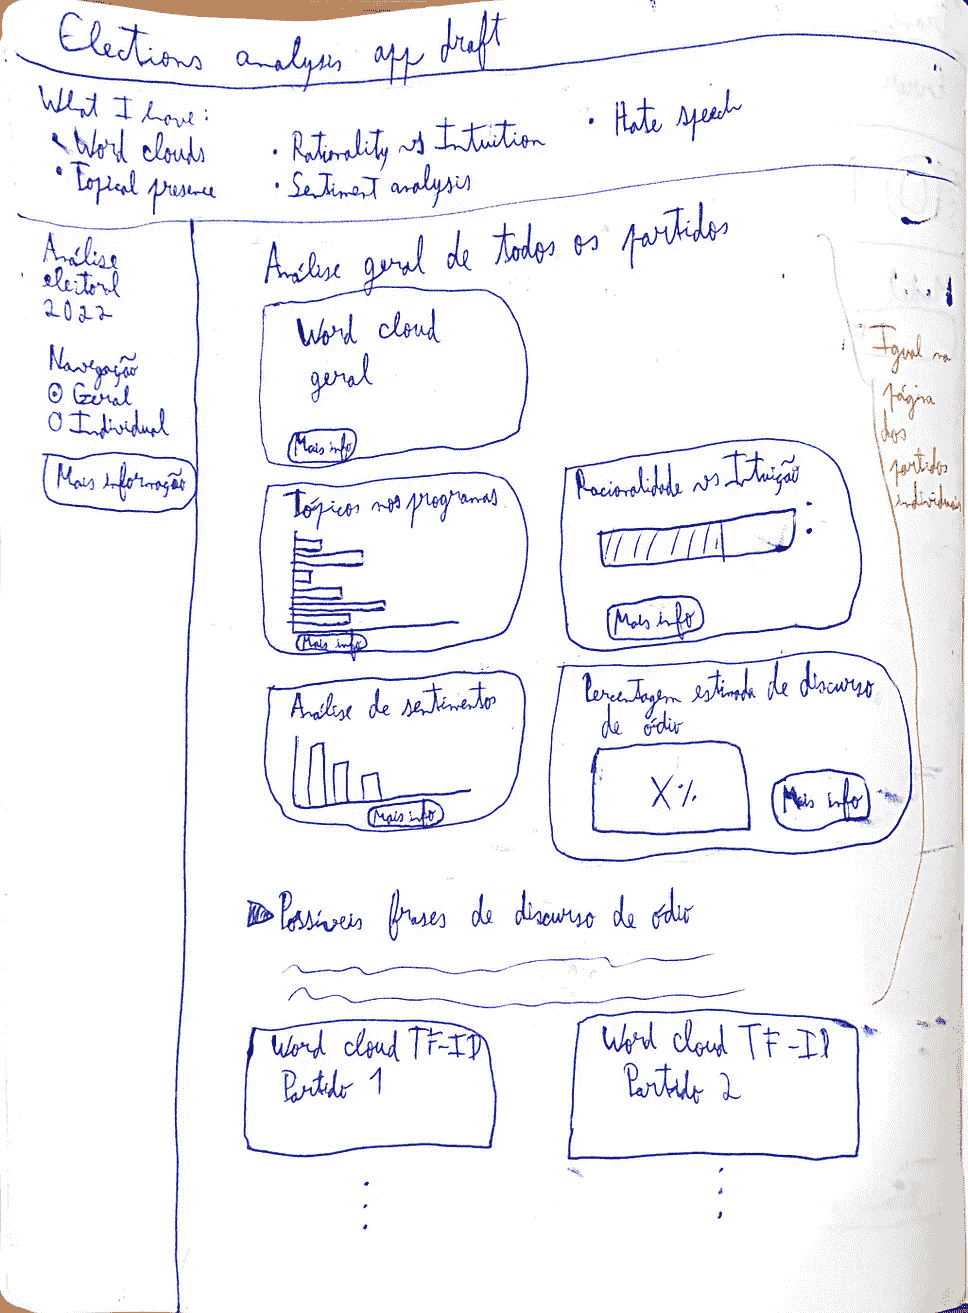 Elections analysis app draft
What I have:
• Word clouds
• Topical presence
• Rationality vs Intuition
• Sentiment analysis
• Hate speech
Análise
eleitoral
2022
Navegação
Geral
Individual
Mais informação
Análise geral de todos os partidos
Word cloud
geral
Mais info
Tópicos nos programas
Mais info
Racionalidade vs Intuição
Mais info
Análise de sentimentos
Mais info
Percentagem estimada de discurso
de ódio
X%
Mais info
Possíveis frases de discurso de ódio
Word cloud TF-ID
Partido 1
Word cloud TF-ID
Partido 2
Igual na
página
dos
partidos
individuais